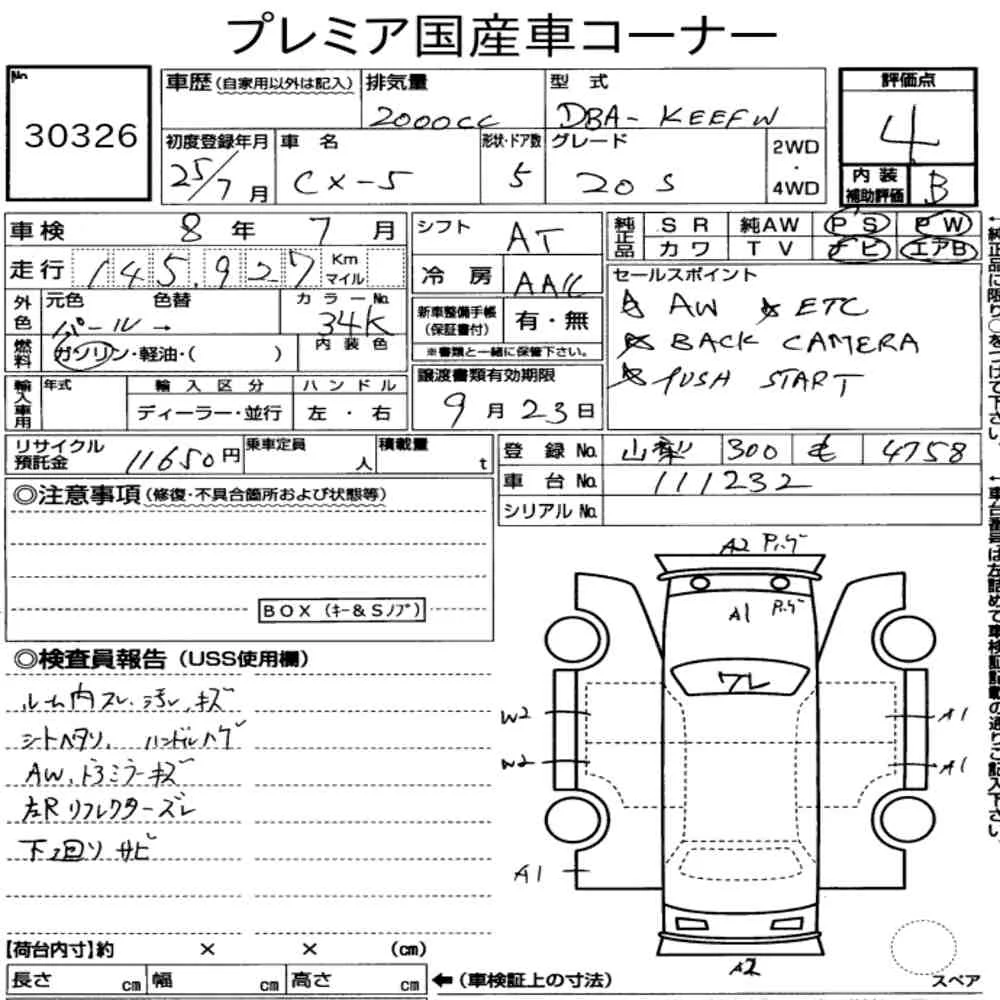 プレミア国産車コーナー
No.
30326
車歴(自家用以外は記入) 排気量 型 式 評価点
2000cc DBA- KEEFW 4
初度登録年月 車 名 形状・ドア数 グレード 2WD・4WD
25/7月 CX-5 5 20S
内装補助評価 B
車検 8年 7月 シフト AT
純正品 SR 純AW PS PW
カワ TV ナビ エアB
走行 145,927 Km マイル
冷房 AAC
セールスポイント
☆ AW ☆ ETC
☆ BACK CAMERA
☆ PUSH START
外色 元色 色替 カラーNo.
パール → 34K
新車整備手帳(保証書付) 有・無
※書類と一緒に保管下さい。
燃料 ガソリン・軽油・( ) 内装色
輸入車用 年式 輸入区分 ハンドル
ディーラー・並行 左・右
譲渡書類有効期限
9月23日
リサイクル預託金 11650円 乗車定員 人 積載量 t
登録No. 山梨 300 も 4758
車台No. 111232
シリアルNo.
◎注意事項(修復・不具合箇所および状態等)
BOX (キー&Sノブ)
◎検査員報告(USS使用欄)
ルーム内スレ、汚レ、キズ
シートヘタリ、ハンドルハゲ
AW、ドアミラーキズ
左Rリフレクターズレ
下回りサビ
A2 P.ハゲ
A1 P.ハゲ
ワレ
W2 A1
W2 A1
A1
A2
スペア
【荷台内寸】約 × × (cm)
長さ cm 幅 cm 高さ cm ←(車検証上の寸法)
←純正品に限り○をつけて下さい。
←車台番号は左詰めで車検証記載の通りご記入下さい。